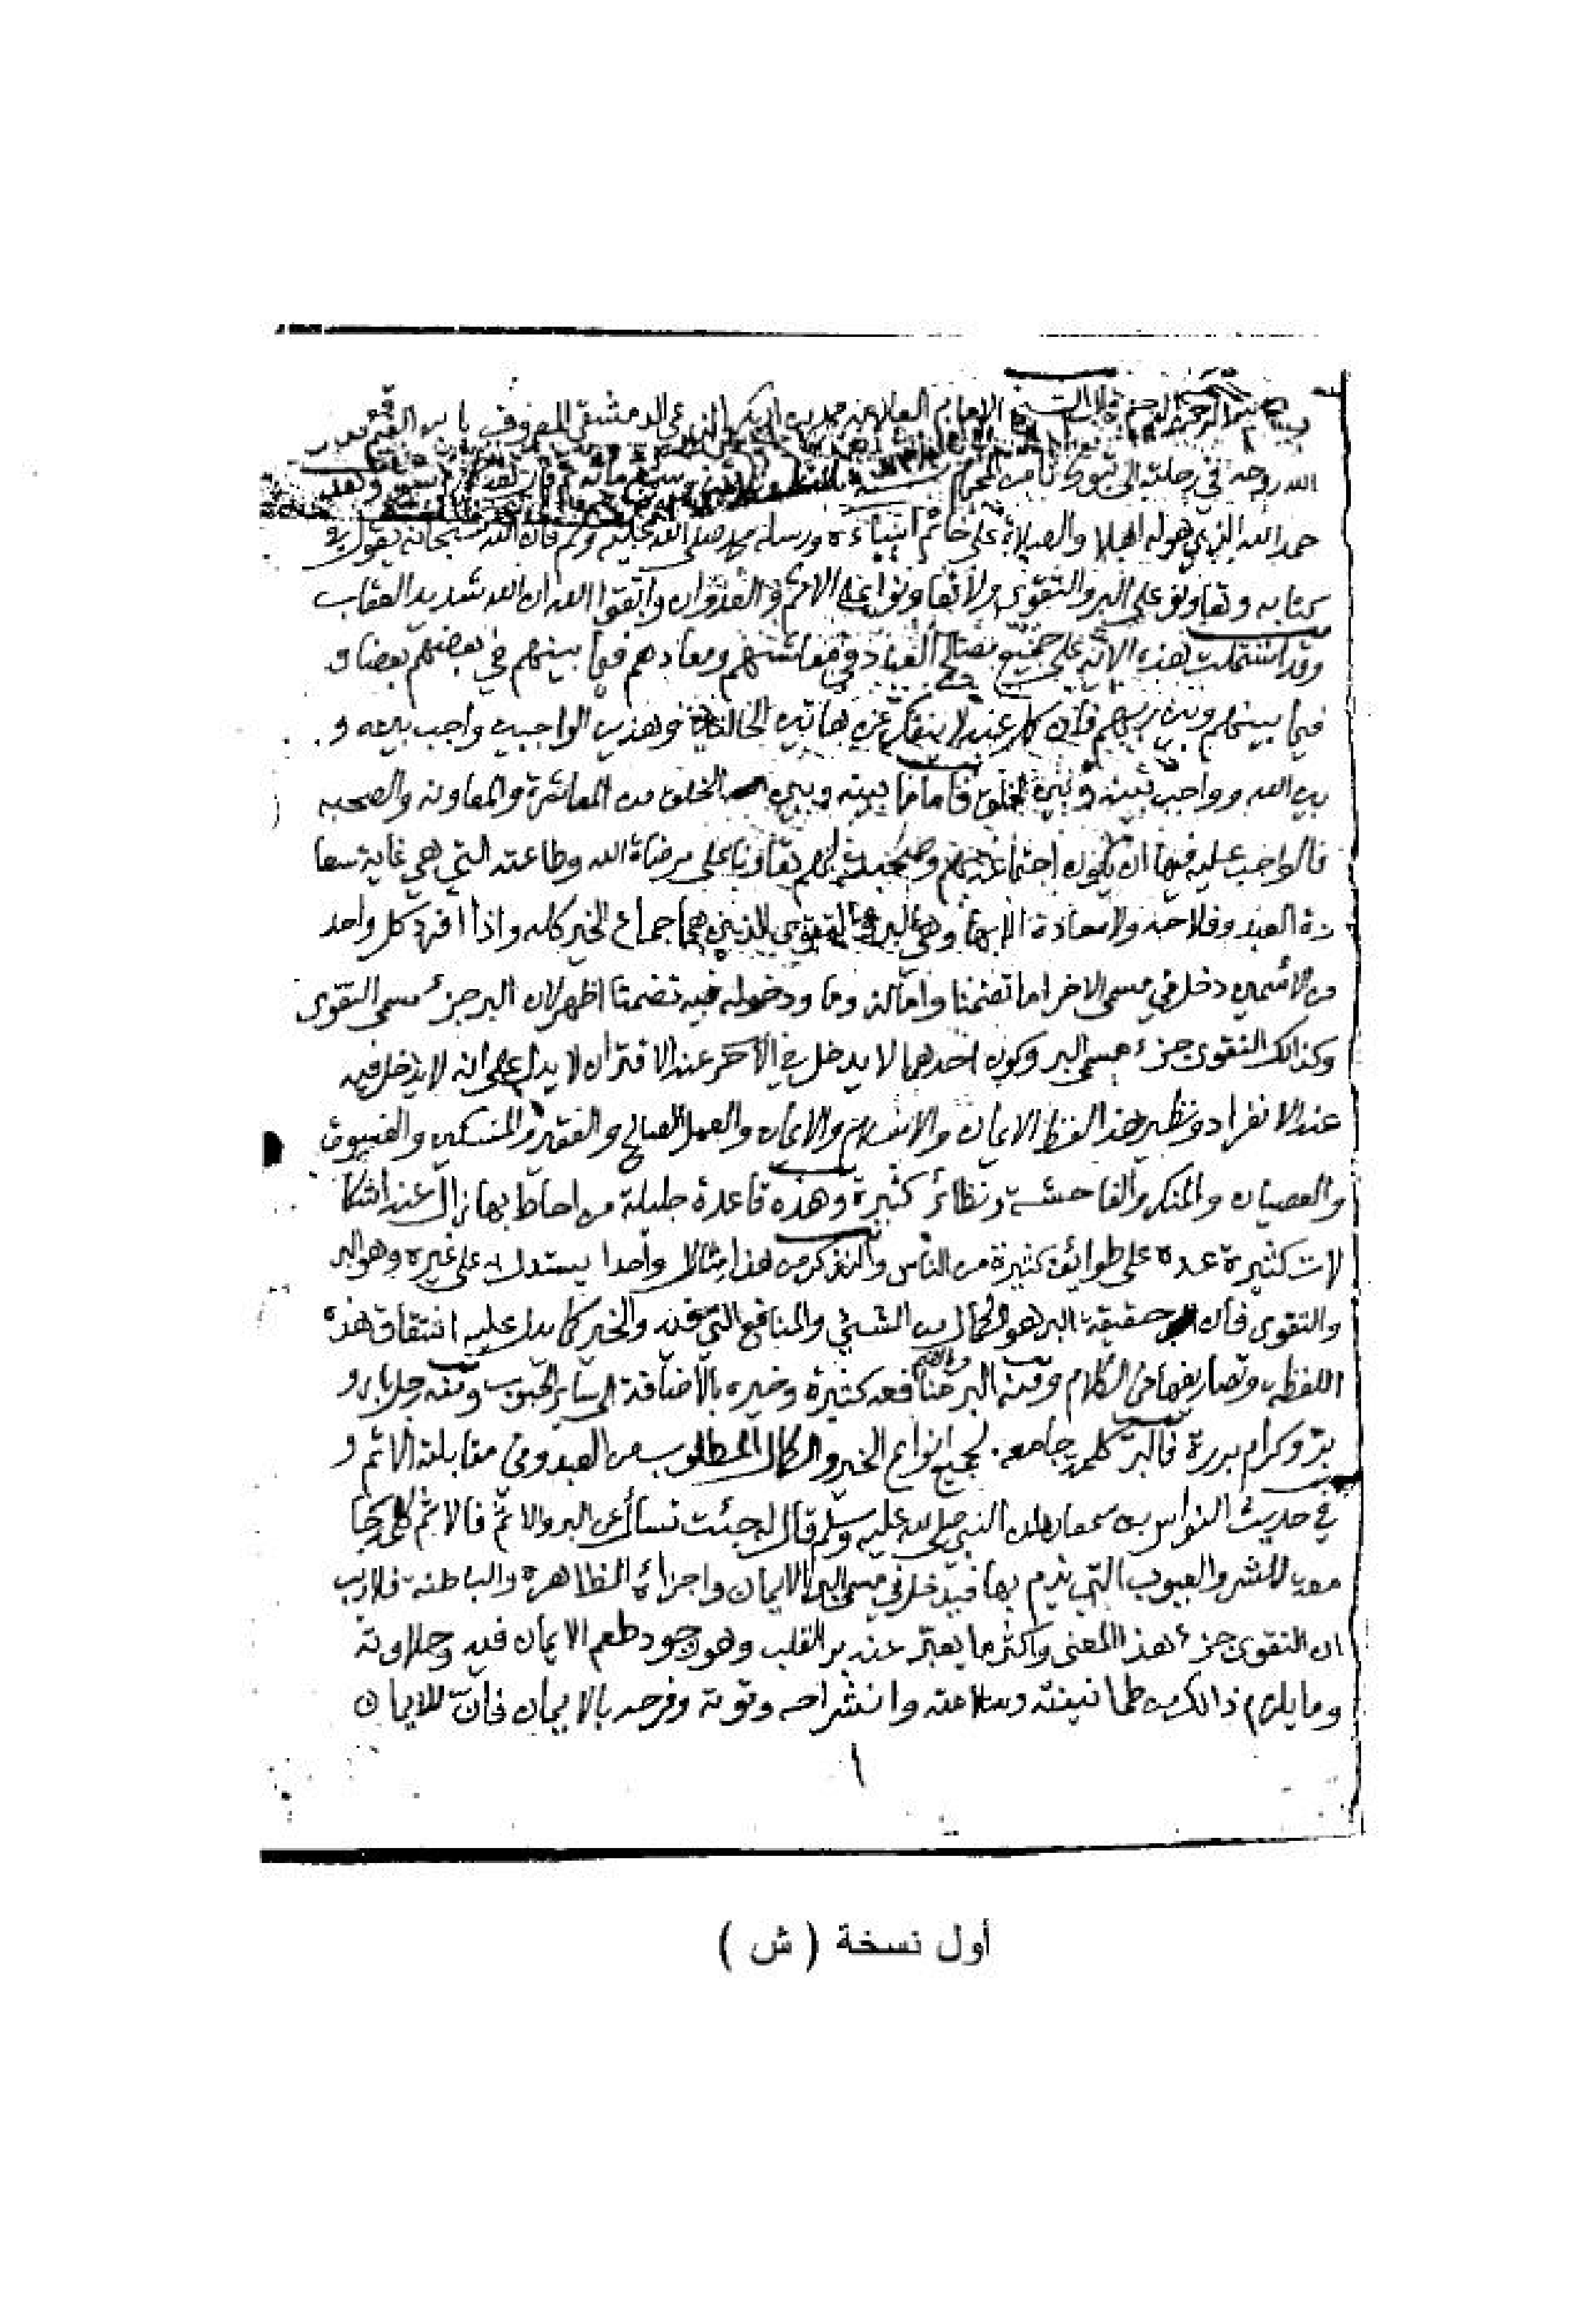 بسم الله الرحمن الرحيم الامام العلامه محمد بن ابي بكر الزرعي الدمشقي المعروف بابن القيم قدس
الله روحه في رحلته الى تبوك ثامن المحرم سنة وسبعمائة
حمد الله الذي هو له اهلا والصلاة على خاتم انبياءه ورسله محمد صلى الله عليه وسلم فان الله سبحانه يقول في
كتابه وتعاونو على البر والتقوى ولا تعاونوا على الاثم والعدوان واتقوا الله ان الله شديد العقاب
وقد اشتملت هذه الاية على جميع مصالح العباد في معاشهم ومعادهم فيما بينهم في بعضهم بعضا و
فيما بينهم وبين ربهم فان كل عبد لا ينفك عن هاتين الحالتين وهذين الواجبين واجب بينه و
بين الله وواجب بينه وبين الخلق فاما ما بينه وبين الخلق من المعاشرة والمعاونه والصحبه
فالواجب عليه فيها ان يكون اجتماعه بهم وصحبته لهم تعاونا على مرضاة الله وطاعته التي هي غاية سعا
دة العبد وفلاحه ولا سعادة الا بها وهي البر والتقوى الذين هما جماع الخير كله واذا افرد كل واحد
من الاسمين دخل في مسمى الاخر اما تضمنا واما لزوما ودخوله فيه تضمنا اظهر لان البر جزء مسمى التقوى
وكذالك التقوى جزء مسمى البر وكون احدهما لا يدخل في الآخر عند الاقتران لا يدل على انه لا يدخل فيه
عند الانفراد ونظير هذا لفظ الايمان والاسلام والايمان والعمل الصالح والفقير والمسكين والفسوق
والعصيان والمنكر والفاحشة ونظائر كثيرة وهذه قاعدة جليلة من احاط بها زال عنه اشكا
لات كثيرة عده على طوائف كثيرة من الناس ولنذكر من هذا مثالا واحدا يستدل به على غيره وهو البر
والتقوى فان حقيقة البر هو الكمال من الشئ والمنافع التي فيه والخير كما يدل عليه اشتقاق هذه
اللفظه وتصاريفها في الكلام ومنه البر لمنافعه كثيرة وخيره بالاضافة الى سائر الحبوب ومنه رجل بار و
بر وكرام بررة فالبر كلمة جامعه لجميع انواع الخير والكمال المطلوب من العبد وفي مقابلته الاثم و
في حديث النواس بن سمعان ان النبي صلى الله عليه وسلم قال له جئت تسأل عن البر والاثم فالاثم كلمة جا
معه للشر والعيوب التي يذم بها فيدخل في مسمى البر الايمان واجزاءه الظاهرة والباطنة فلا ريب
ان التقوى جزء هذا المعنى واكثر ما يعبر عنه بر القلب وهو وجود طعم الايمان فيه وحلاوته
وما يلزم ذالك من طمانينته وسلامته وانشراحه وقوته وفرحه بالايمان فان للايمان
١
أول نسخة ( ش )